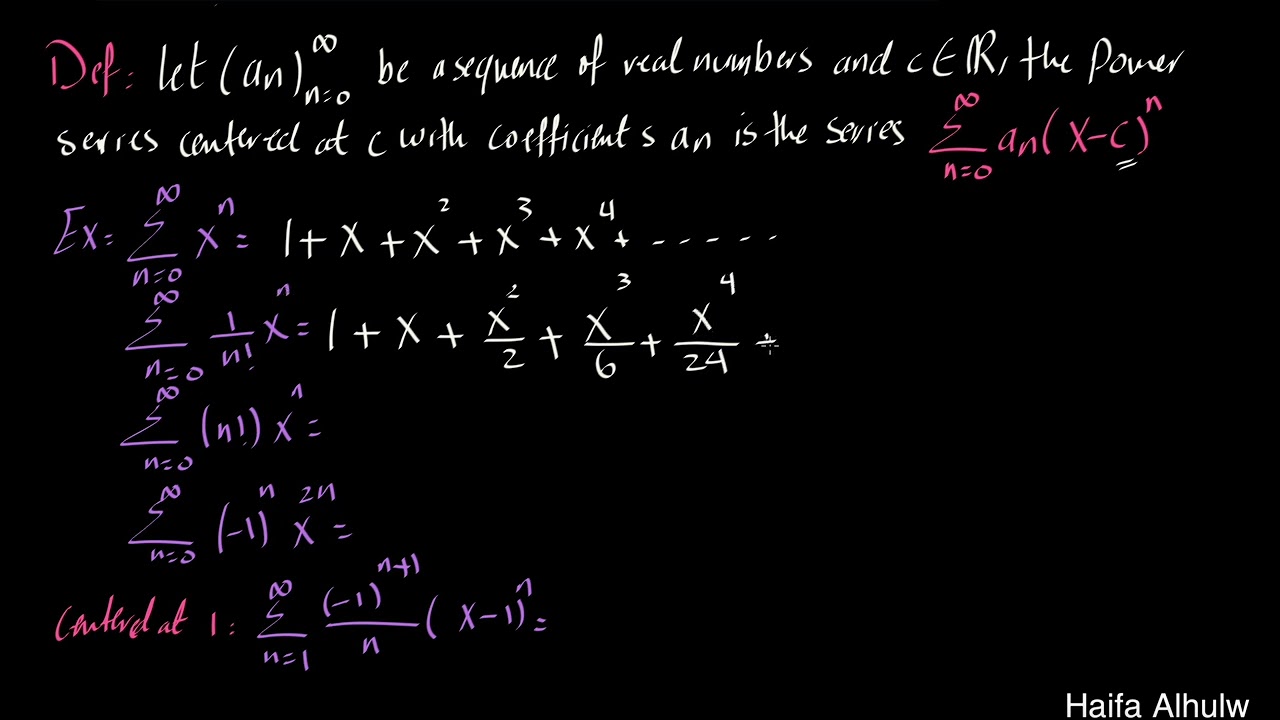 Def: let (an)_{n=0}^{∞} be a sequence of real numbers and c ∈ ℝ, the Power
series centered at c with coefficients an is the series ∑_{n=0}^{∞} an(x-c)^n
Ex: ∑_{n=0}^{∞} x^n = 1 + x + x^2 + x^3 + x^4 + -----
∑_{n=0}^{∞} 1/n! x^n = 1 + x + x^2/2 + x^3/6 + x^4/24 +
∑_{n=0}^{∞} (n!) x^n =
∑_{n=0}^{∞} (-1)^n x^{2n} =
Centered at 1: ∑_{n=1}^{∞} (-1)^{n+1}/n (x-1)^n =
Haifa Alhulw